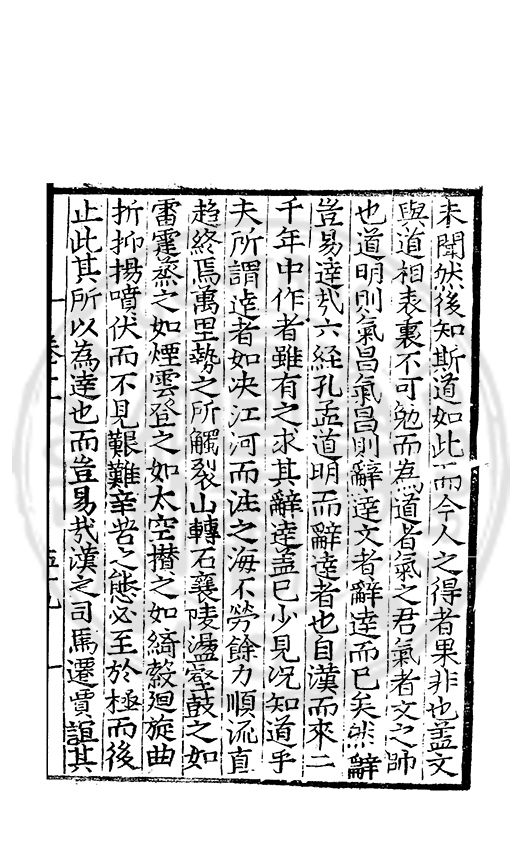 未聞然後知斯道如此而今人之得者果非也蓋文
與道相表裏不可勉而為道者氣之君氣者文之帥
也道明則氣昌氣昌則辭達文者辭達而已矣然辭
豈易達㦲六經孔孟道明而辭達者也自漢而來二
千年中作者雖有之求其辭達蓋已少見况知道乎
夫所謂達者如决江河而注之海不勞餘力順流直
趍終焉萬里勢之所觸裂山轉石襄陵盪壑鼓之如
雷霆蒸之如煙雲登之如太空攅之如綺縠迴旋曲
折抑揚噴伏而不見艱難辛苦之態必至於極而後
止此其所以為達也而豈易㦲漢之司馬遷賈誼其